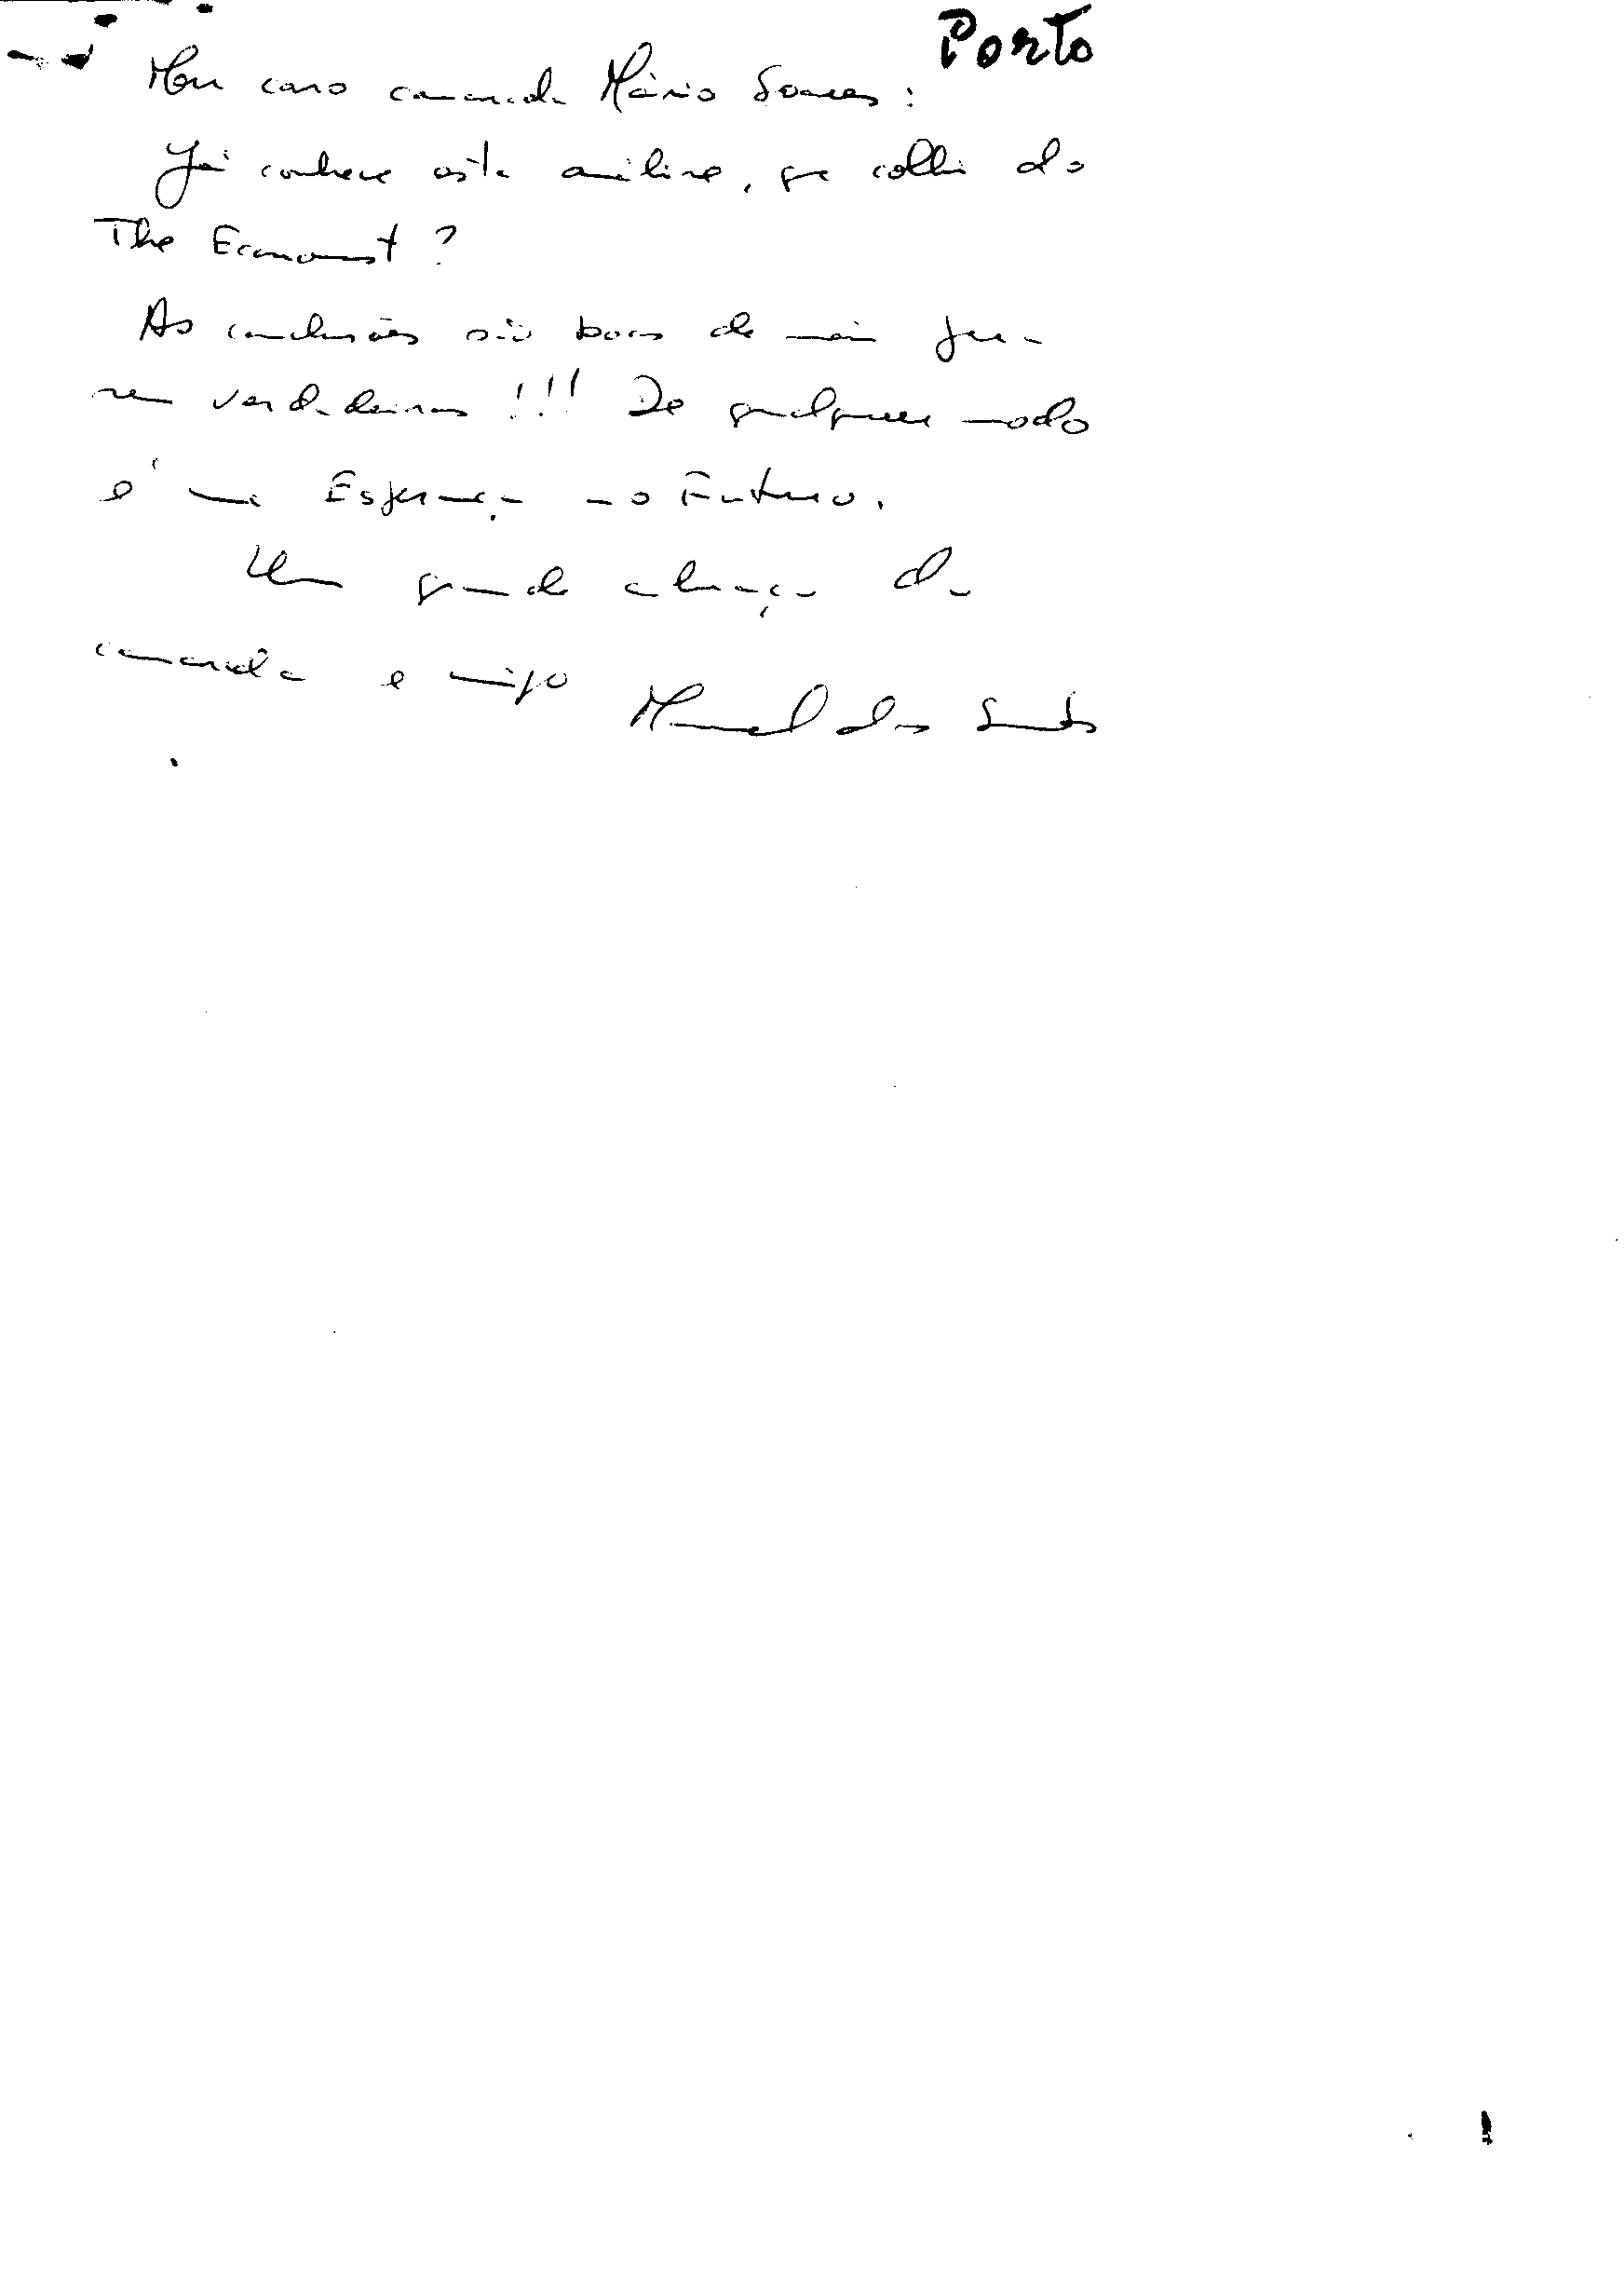 Porto
Meu caro camarada Mário Soares:
Já conhece esta análise, que colhi do
The Economist?
As conclusões são boas de mais para se-
rem verdadeiras!!! De qualquer modo
é uma Esperança no Futuro.
Um grande abraço do
camarada e amigo Manuel dos Santos